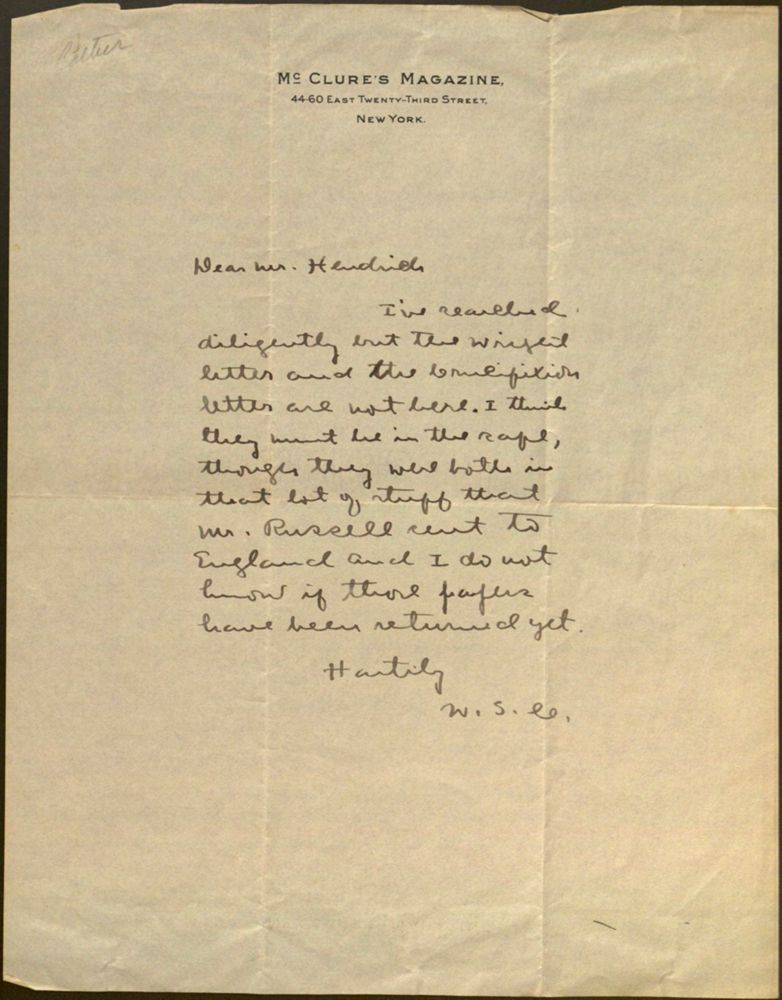 Mc CLURE'S MAGAZINE,
44-60 EAST TWENTY-THIRD STREET,
NEW YORK.
Dear Mr. Hendrick
I've searched
diligently but the Wright
letter and the Crucifixion
letter are not here. I think
they must be in the safe,
though they were both in
that lot of stuff that
Mr. Russell sent to
England and I do not
know if those papers
have been returned yet.
Hastily
W. S. C.